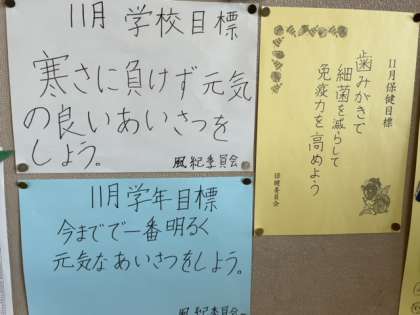 11月 学校目標
寒さに負けず元気
の良いあいさつを
しよう。
風紀委員会
11月学年目標
今までで一番明るく
元気なあいさつをしよう。
風紀委員会
11月保健目標
歯みがきで
細菌を減らして
免疫力を高めよう
保健委員会